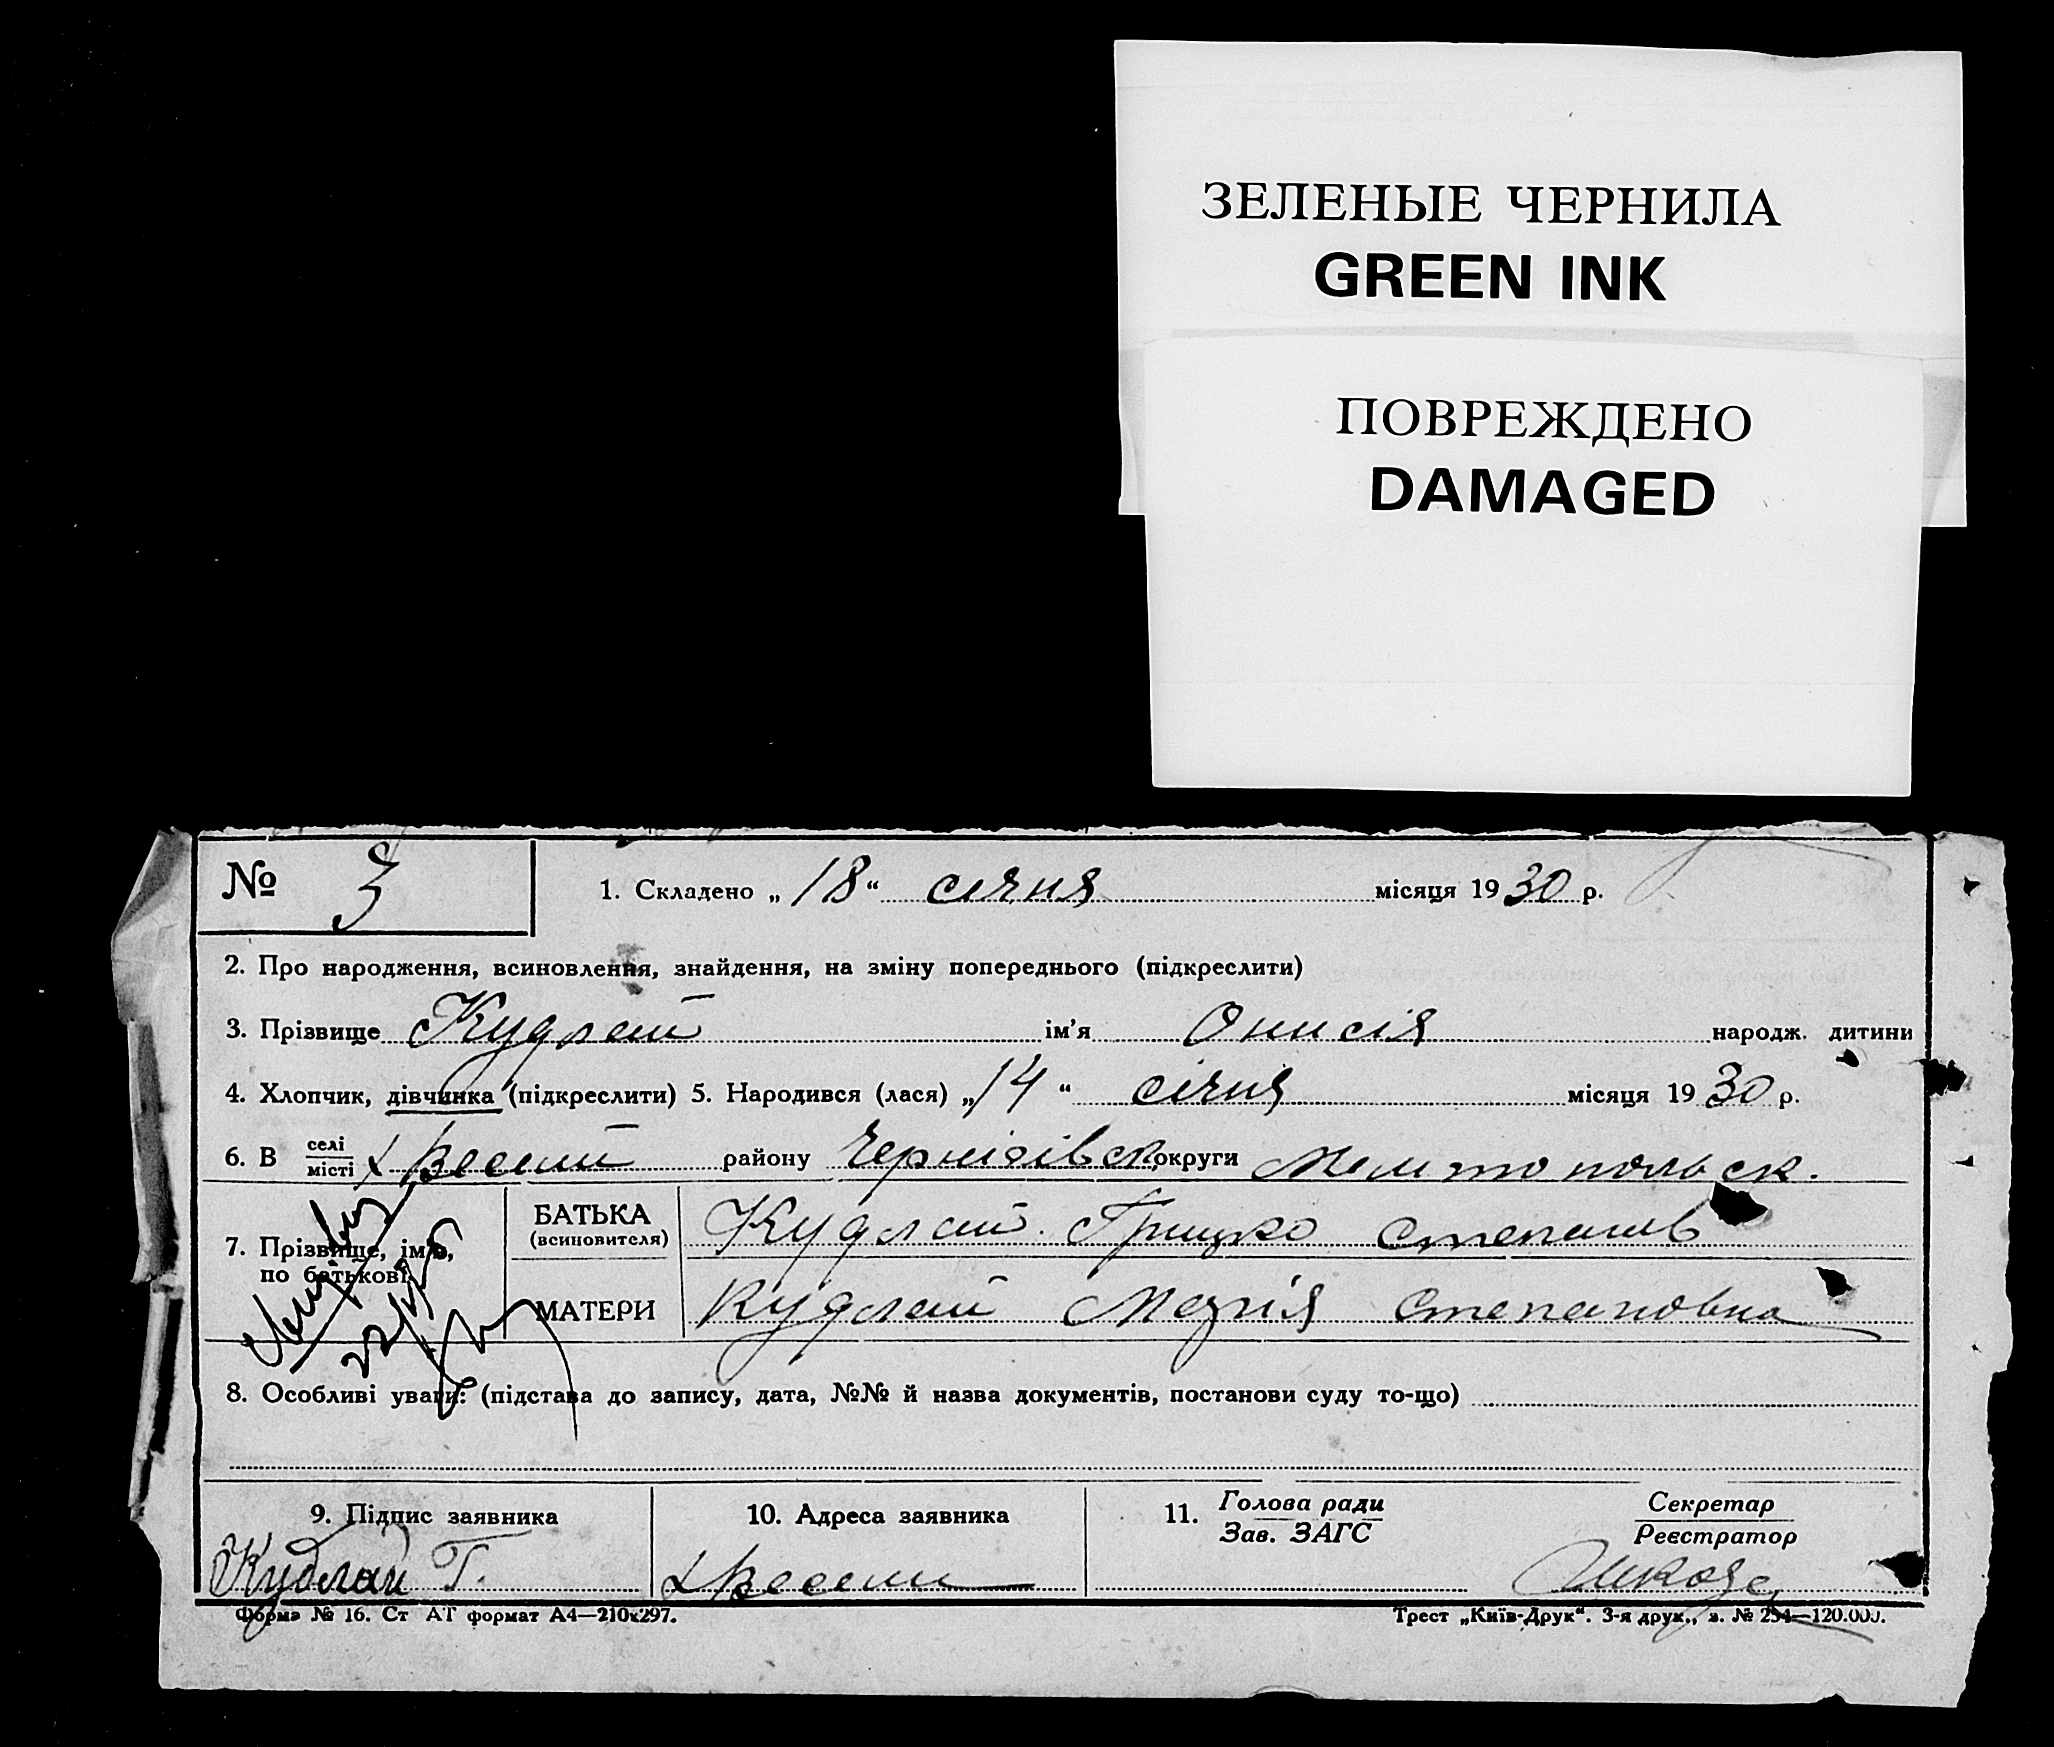 ЗЕЛЕНЫЕ ЧЕРНИЛА
GREEN INK
ПОВРЕЖДЕНО
DAMAGED
№ 3
1. Складено „ 18 “ січня місяця 1930 р.
2. Про народження, всиновлення, знайдення, на зміну попереднього (підкреслити)
3. Прізвище Кудлай ім’я Онисія народж. дитини
4. Хлопчик, дівчинка (підкреслити) 5. Народився (лася) „ 14 “ січня місяця 1930 р.
6. В селі місті х Веселий району Чернігівськ округи Мелитопольск.
7. Прізвище, ім’я, по батькові
БАТЬКА (всиновителя) Кудлай Грицко Степанів
МАТЕРИ Кудлай Марія Степановна
8. Особливі уваги: (підстава до запису, дата, №№ й назва документів, постанови суду то-що)
9. Підпис заявника
Кудлай Г.
10. Адреса заявника
х Весели
11. Голова ради
Зав. ЗАГС
Секретар
Реєстратор
Форма № 16. Ст АТ формат А4—210х297.
Трест „Київ-Друк“. 3-я друк., з. № 254—120.000.